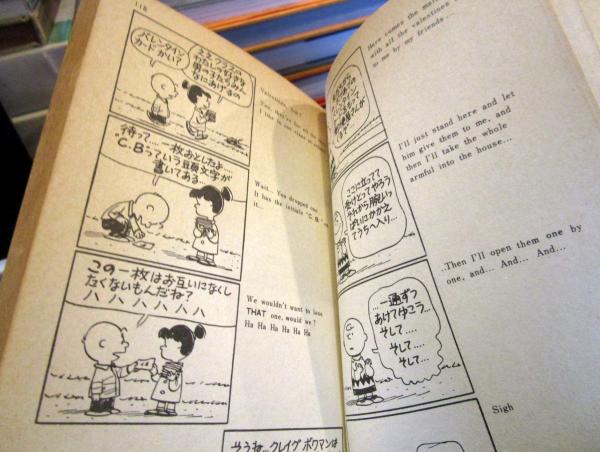 118
バレンタイン
カードかい?
ええクラスの
わたしの好きな
男の子たちみん
なにあげるの
Valentines, huh?
Yes, they're for all the
I like in our class at
待って……一枚おとしたよ
"C.B"っていう頭文字が
書いてある…
Wait... You dropped one
It has the initials "C. B."
it...
この一枚はお互いになくし
たくないもんだね?
ハハハハハハ
We wouldn't want to lose
THAT one, would we?
Ha Ha Ha Ha Ha Ha
そうね…クレイグ ボウマンは
Here comes the mail
with all the valentines
to me by my friends....
ここに立ってて
受けとってやろう
それから腕いっ
ぱいにかかえ
てうちへ入り…
I'll just stand here and let
him give them to me, and
then I'll take the whole
armful into the house...
一通ずつ
あけてゆこう…
そして……
そして……
そして……
..Then I'll open them one by
one, and... And... And...
Sigh